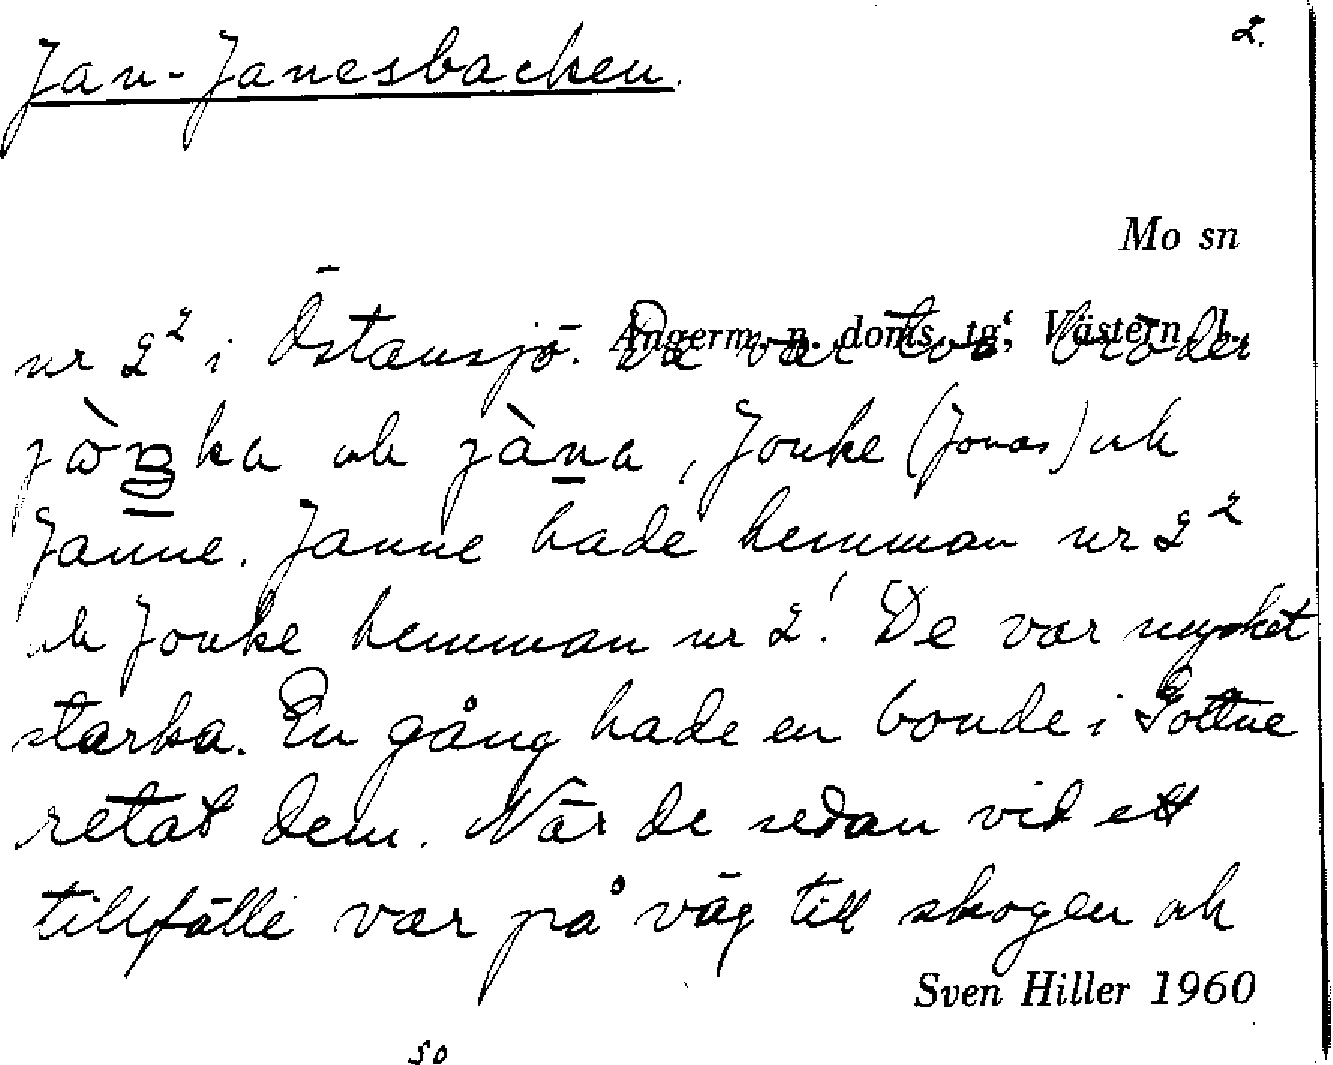 2.
Jan-Janesbacken.
Mo sn
Ångerm. n. doms. tg, Västern l.
nr 2² i Östansjö. Dä var två bröder
jòŋka och jàna, Jonke (Jonas) och
Janne. Janne hade hemman nr 2²
och Jonke hemman nr 2¹. De var mycket
starka. En gång hade en bonde i Gottne
retat dem. När de sedan vid ett
tillfälle var på väg till skogen och
Sven Hiller 1960
50